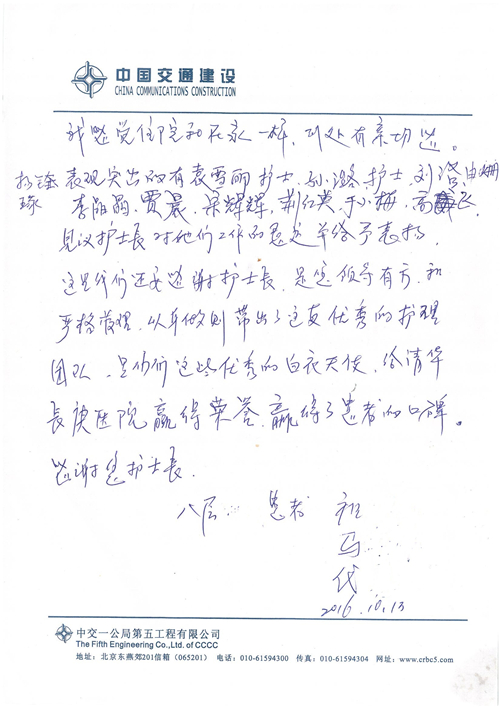 中国交通建设
CHINA COMMUNICATIONS CONSTRUCTION
我感觉住院和在家一样,到处有亲切感。
表现突出的有袁雪丽护士,孙璐护士,刘
李阳 贾晨、梁辉辉,荆红英 于小梅,高
建议护士长对他们工作的 给予表扬,
这里我们还要感谢护士长,是您领导有方,和
严格管理,以身做则带出了这支优秀的护理
团队,是你们这些优秀的白衣天使,给清华
长庚医院赢得荣誉,赢得了患者的口碑。
感谢您护士长
八层 患者 祖
马
代
2016.10.13
中交一公局第五工程有限公司
The Fifth Engineering Co.,Ltd.of CCCC
地址:北京东燕郊201信箱(065201) 电话:010-61594300 传真:010-61594304 网址:www.crbc5.com